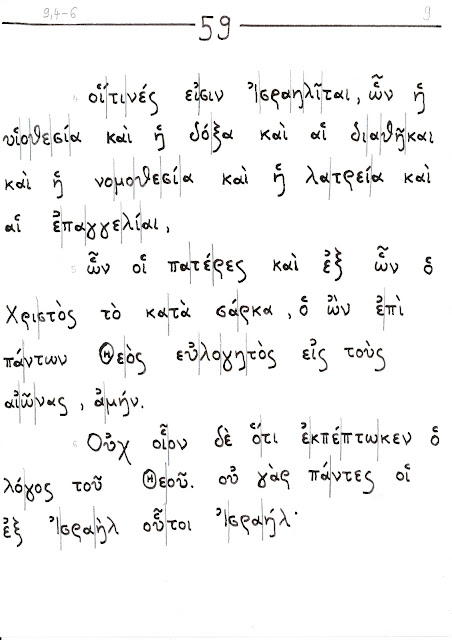 9,4-6
59
9
4 οἵτινές εἰσιν Ἰσραηλῖται, ὧν ἡ
υἱοθεσία καὶ ἡ δόξα καὶ αἱ διαθῆκαι
καὶ ἡ νομοθεσία καὶ ἡ λατρεία καὶ
αἱ ἐπαγγελίαι,
5 ὧν οἱ πατέρες καὶ ἐξ ὧν ὁ
Χριστὸς τὸ κατὰ σάρκα, ὁ ὢν ἐπὶ
πάντων Θεὸς εὐλογητὸς εἰς τοὺς
αἰῶνας, ἀμήν.
6 Οὐχ οἷον δὲ ὅτι ἐκπέπτωκεν ὁ
λόγος τοῦ Θεοῦ. οὐ γὰρ πάντες οἱ
ἐξ Ἰσραὴλ οὗτοι Ἰσραήλ·